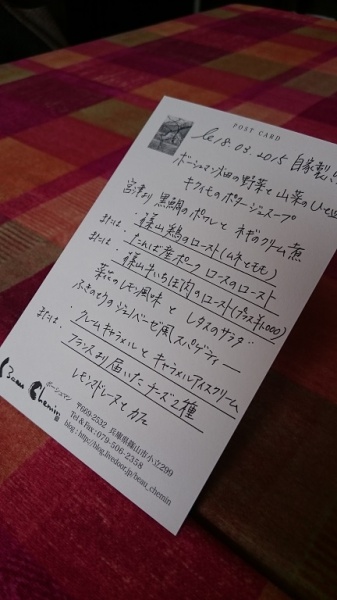 POST CARD
le 18.03.2015 自家製
ボーシュマン畑の野菜と山菜のひと皿
キクイモのポタージュスープ
宮津より黒鯛のポワレとネギのクリーム煮
・篠山鶏のロースト(ムネとモモ)
または・たんば産ポークロースのロースト
または・篠山牛いちぼ肉のロースト(プラス¥1,000)
菜花のレモン風味とレタスのサラダ
ふきのとうのジェノベーゼ風スパゲティー
・クレームキャラメルとキャラメルアイスクリーム
または・フランスより届いたチーズ2種
レモンマドレーヌとカフェ
Beau Chemin
ボーシュマン 〒669-2532 兵庫県篠山市小立209
Tel & Fax : 079-506-2358
blog : http://blog.livedoor.jp/beau_chemin